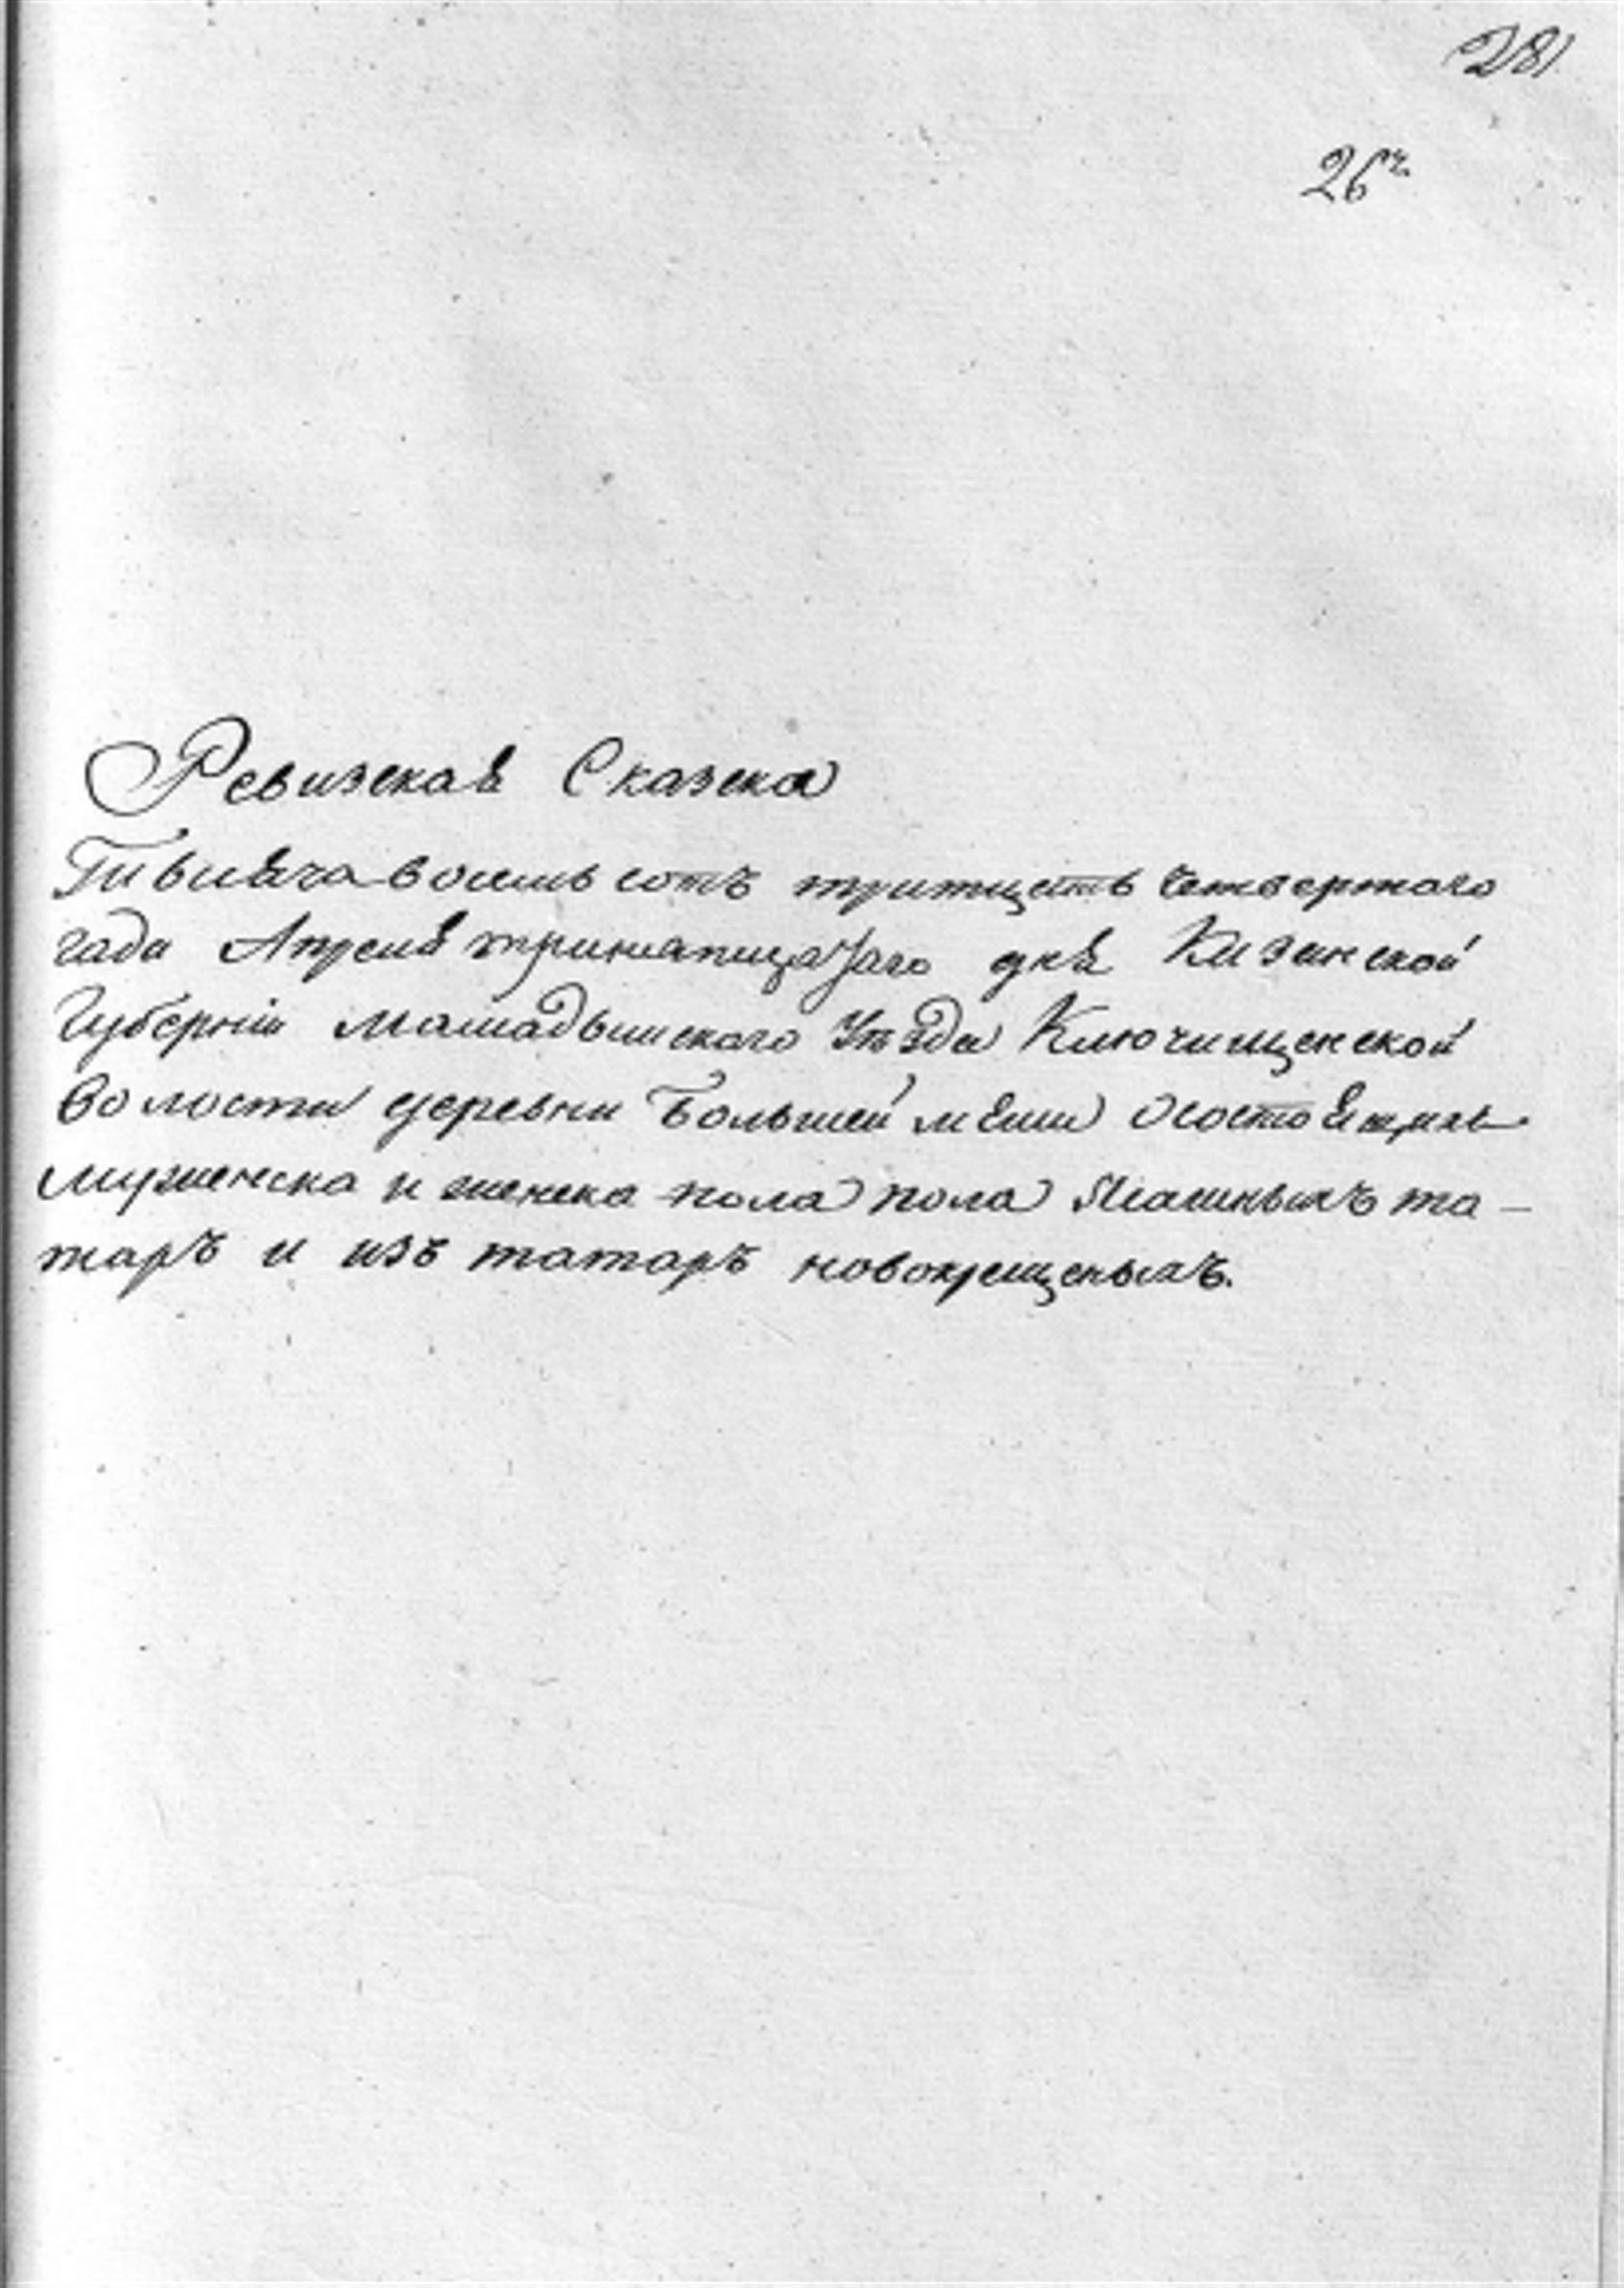 281
26
Ревизская Сказска
Тысяча восемь сотъ тритцать четвертаго
года Апреля тринатцатаго дня Казанской
Губерніи Мамадышскаго Уезда Ключищенской
волости деревни Большей меши осостоящихъ
муженска и женска пола пола Ясашныхъ та-
таръ и изъ татаръ новокрещеныхъ.